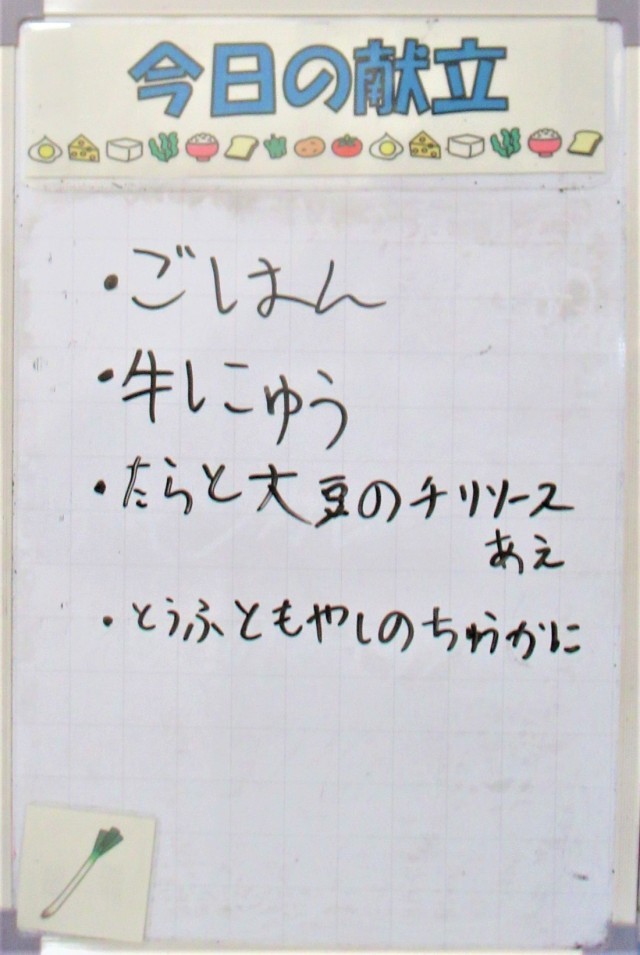 今日の献立
・ごはん
・牛にゅう
・たらと大豆のチリソース
あえ
・とうふともやしのちゅうかに